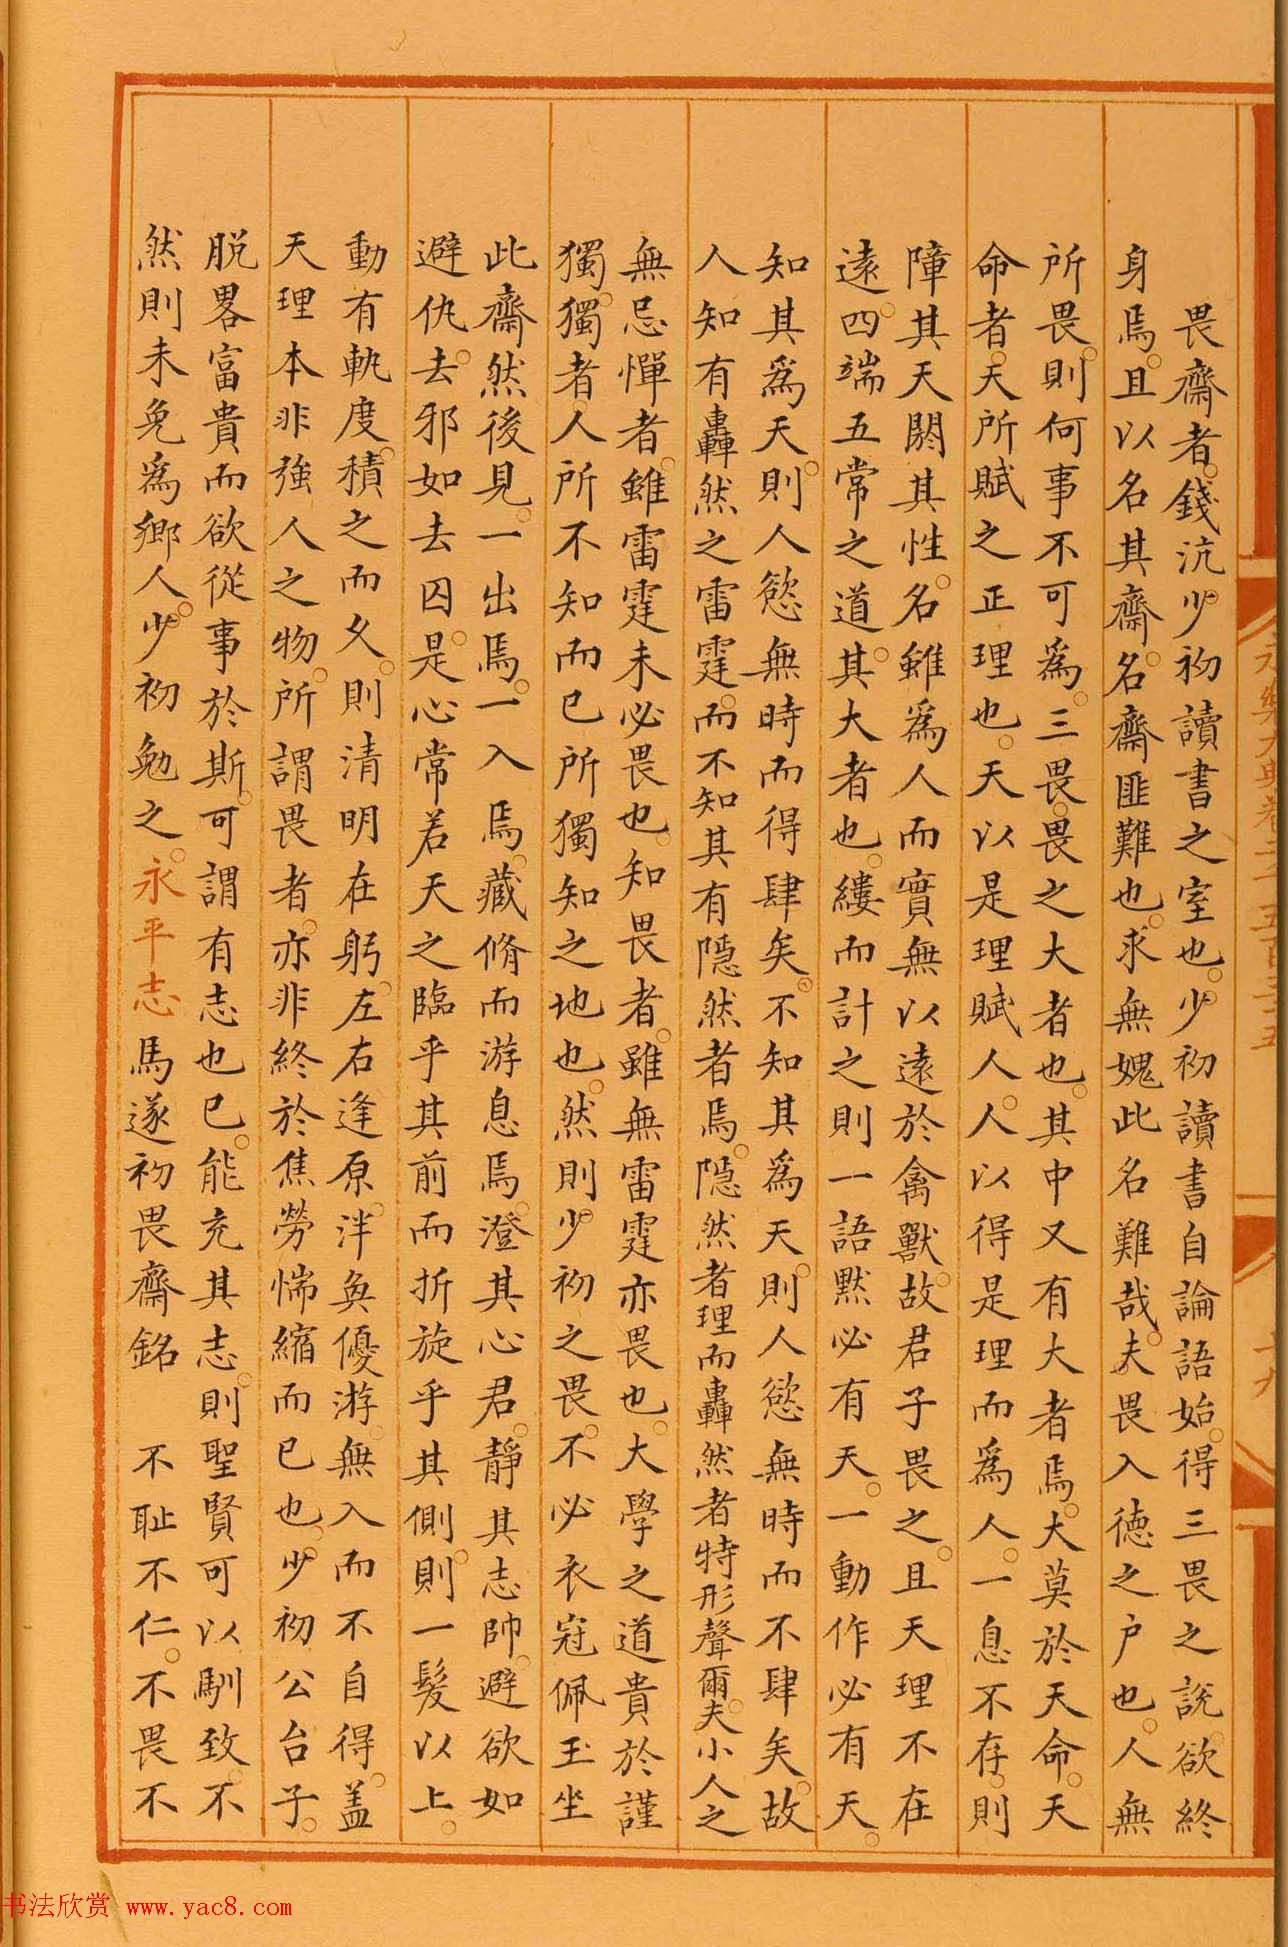 畏齋者錢沆少初讀書之室也少初讀書自論語始得三畏之說欲終
身焉且以名其齋名齋匪難也求無媿此名難哉夫畏入德之户也人無
所畏則何事不可爲三畏畏之大者也其中又有大者焉大莫於天命天
命者天所賦之正理也天以是理賦人人以得是理而爲人一息不存則
障其天閼其性名雖爲人而實無以遠於禽獸故君子畏之且天理不在
遠四端五常之道其大者也縷而計之則一語默必有天一動作必有天
知其爲天則人慾無時而得肆矣不知其爲天則人慾無時而不肆矣故
人知有轟然之雷霆而不知其有隠然者焉隠然者理而轟然者特形聲爾夫小人之
無忌憚者雖雷霆未必畏也知畏者雖無雷霆亦畏也大學之道貴於謹
獨獨者人所不知而已所獨知之地也然則少初之畏不必衣冠佩玉坐
此齋然後見一出焉一入焉藏脩而游息焉澄其心君靜其志帥避欲如
避仇去邪如去囚是心常若天之臨乎其前而折旋乎其側則一髮以上
動有軌度積之而久則清明在躬左右逢原泮奐優游無入而不自得蓋
天理本非強人之物所謂畏者亦非終於焦勞惴縮而已也少初公台子
脱畧富貴而欲從事於斯可謂有志也已能充其志則聖賢可以馴致不
然則未免爲鄉人少初勉之永平志馬遂初畏齋銘 不耻不仁不畏不
永樂大典卷二千五百三十五
十九
书法欣赏 www.yac8.com